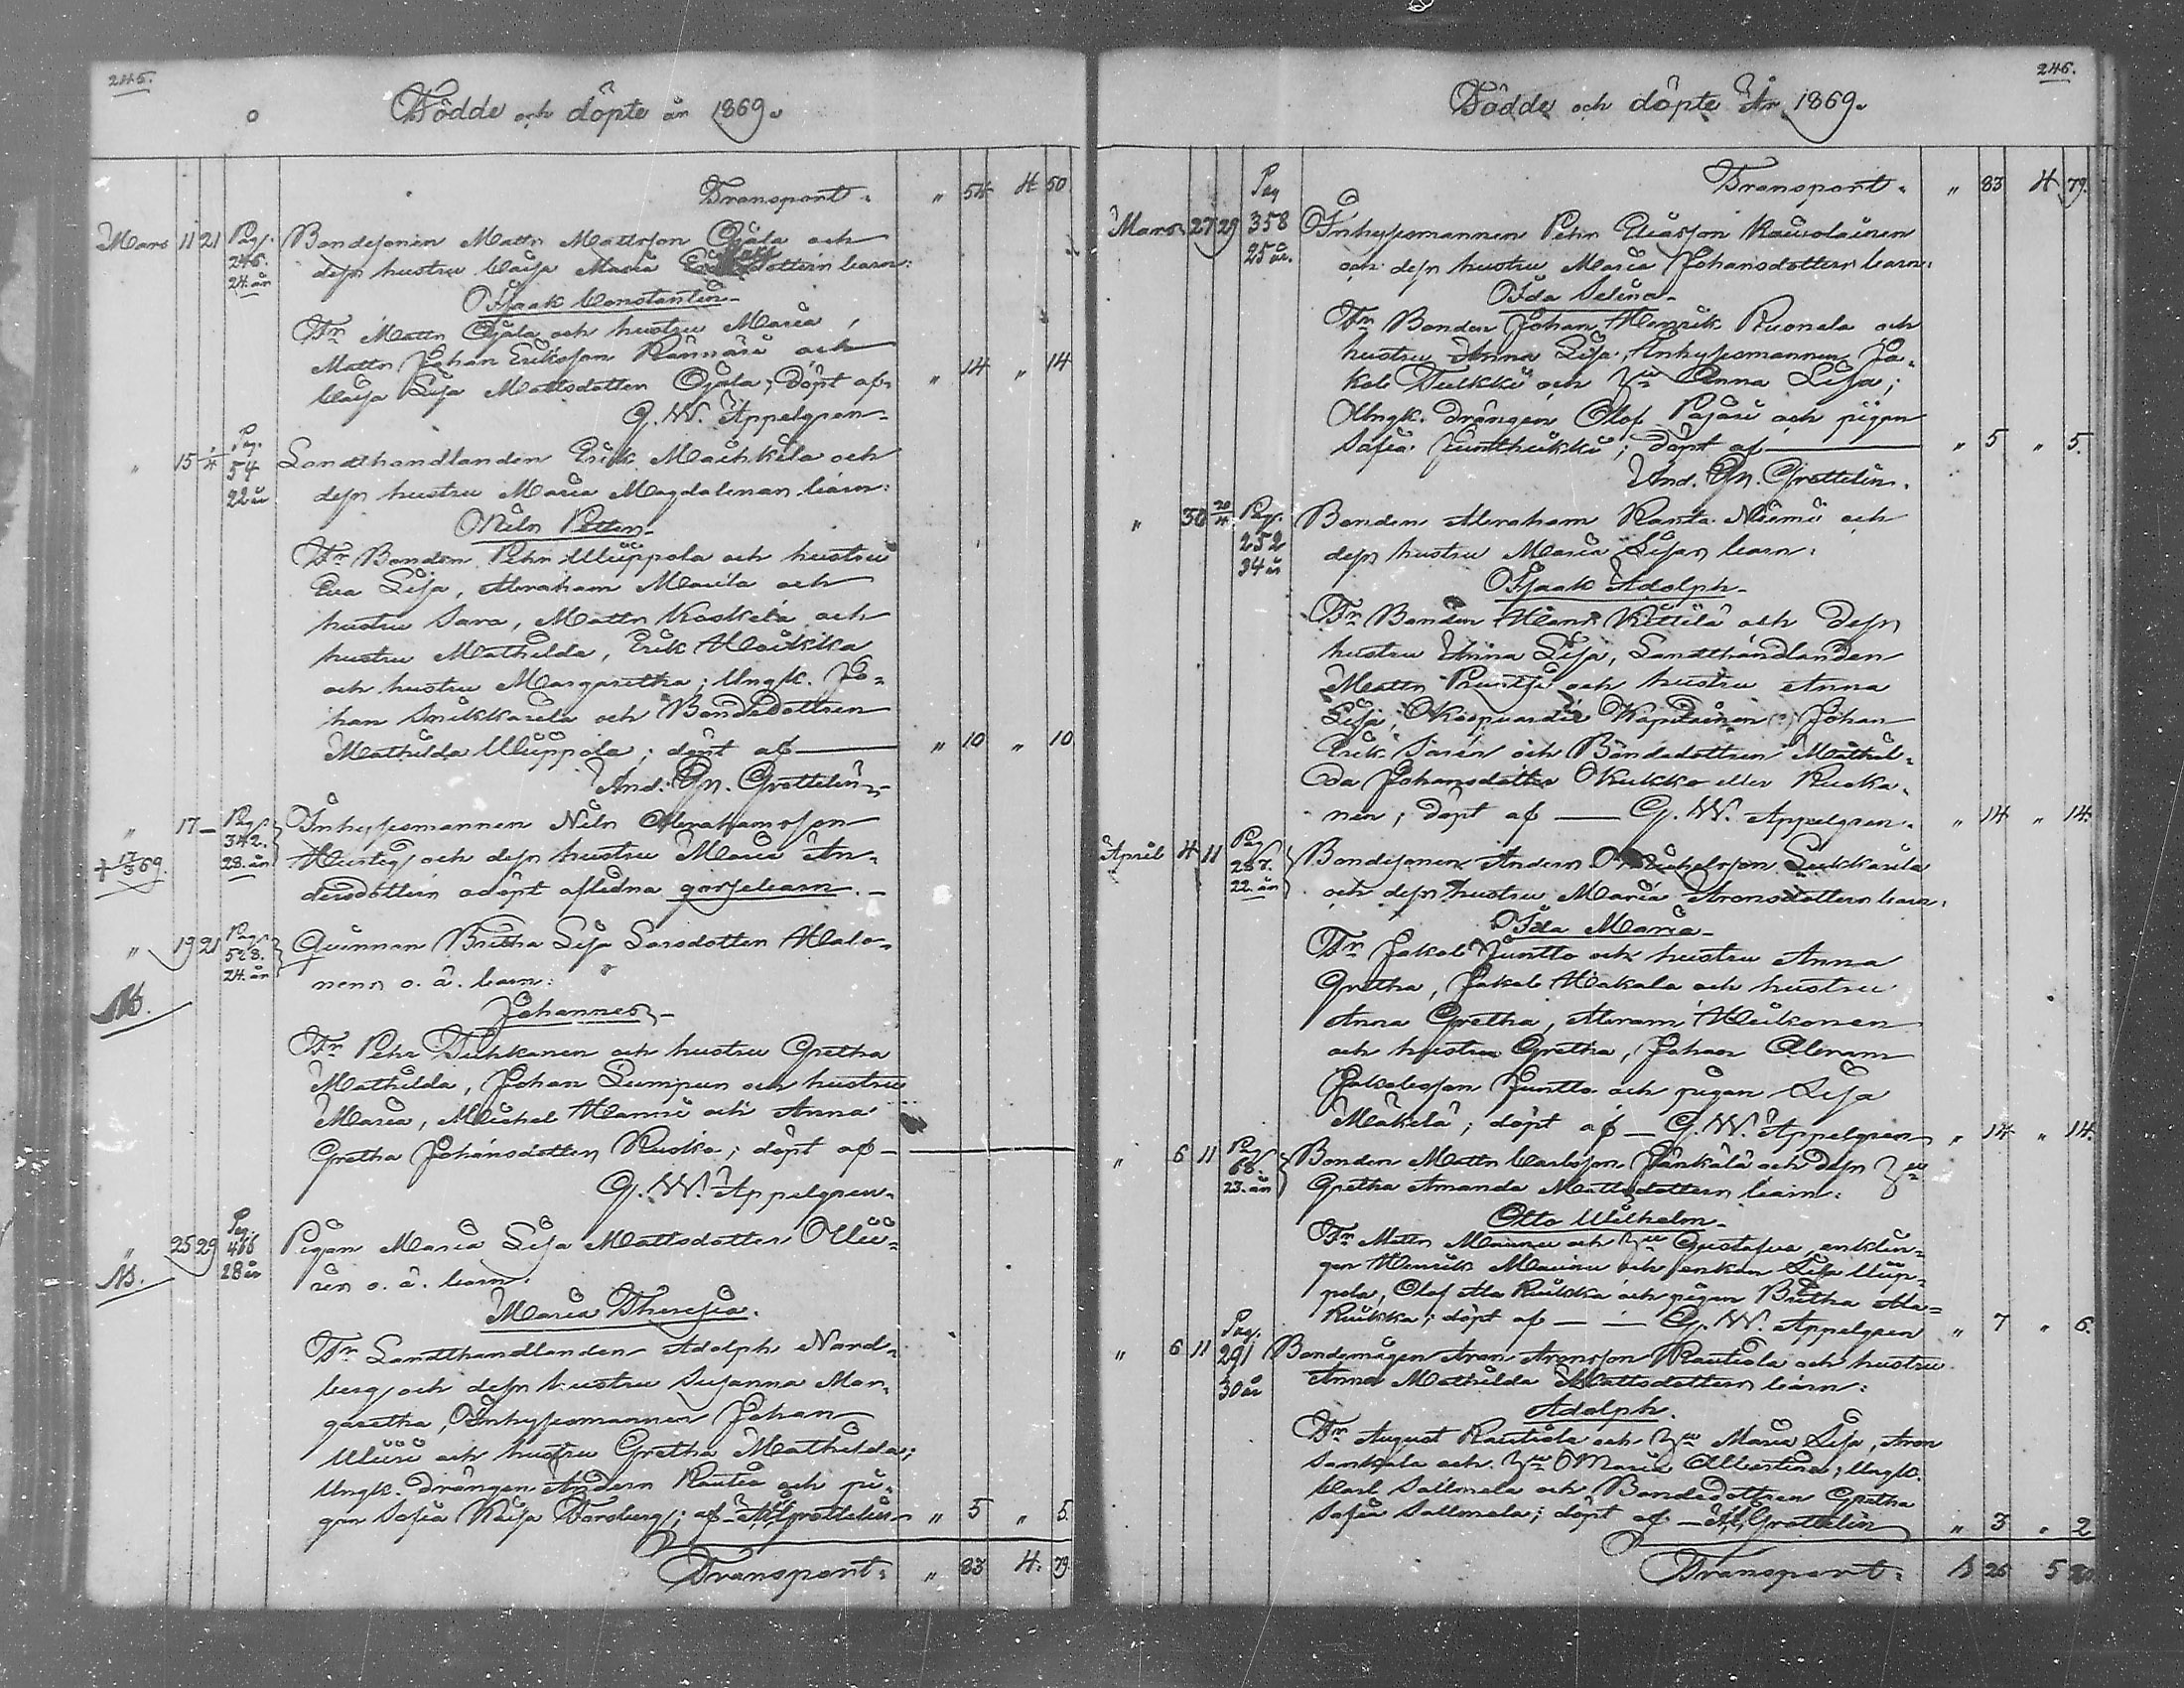 245.
Födde och döpte år 1869.
Transport. " 54 4 50
Mars 11 21 Pag. 246. 24 år Bondesonen Matts Mattsson Ojala och
dess hustru Caisa Maria dotters barn:
Isaak Constantin
Fr. Matts Ojala och hustru Maria,
Matts Johan Eriksson Rännäri och
Caisa Lisa Mattsdotter Ojala; döpt af " 14 " 14
G. W. Appelgren
" 15 1/4 Pag. 54 22 år Landthandlanden Erik Maihkila och
dess hustru Maria Magdalenas barn:
Nils Petter
Fr. Bonden Pehr Uleippola och hustru
Eva Lisa, Abraham Maula och
hustru Sara, Matts Koskela och
hustru Mathilda, Erik Hoikka
och hustru Margaretha; Ungk. Jo-
han Snikkarila och Bondedottren
Mathilda Uleippola; döpt af " 10 " 10
And. Gn. Grottelin
" 17 — Pag. 342. 23. år Inhysesmannen Nils Abrahamsson
+ 17/3 69. Hurtig och dess hustru Maria An-
dersdotters odöpt aflidna gossebarn.
" 19 21 Pag. 523. 24. år Qvinnan Britha Lisa Larsdotter Halo-
nens o. ä. barn:
Nb.
Johannes
Fr. Pehr Tuhkanen och hustru Gretha
Mathilda, Johan Lumpun och hustru
Maria, Michel Hannu och Anna
Gretha Johansdotter Ruska; döpt af
G. W. Appelgren.
" 25 29 Pag. 466 28 år Pigan Maria Lisa Mattsdotter
Nb. ris o. ä. barn:
Maria Theresia.
Fr. Landthandlanden Adolph Nord-
berg och dess hustru Susanna Mar-
garetha, Inhysesmannen Johan
och hustru Gretha Mathilda;
Ungk. drängen Anders Rautio och pi-
gan Sofia Kaisa Forsberg; af Grottelin " 5 " 5.
Transport. " 83 4. 79
246.
Födde och döpte År 1869.
Transport. " 83 4 79.
Mars 27 29 Pag 358 25 år. Inhysesmannen Pehr Eliasson Rauolainen
och dess hustru Maria Johansdotters barn:
Ida Selina
Fr. Bonden Johan Henrik Ruonala och
hustru Anna Lisa, Inhysesmannen Ja-
kob Tulkki och Anna Lisa;
Ungk. drängen Olof Pajari och pigan
Sofia Junthikki; döpt af " 5 " 5.
And. Gn. Grottelin.
" 30 20/4 Pag. 252 34 år Bonden Abraham Ranta Niemi och
dess hustru Maria Lisas barn:
Isaak Adolph
Fr. Bonden Hans Kittilä och dess
hustru Anna Lisa, Landthandlanden
Matts och hustru Anna
Lisa, Koopvardie Kapitainen (?) Johan
Erik Sorén och Bondedottren Mathil-
da Johansdotter Kukko eller Ruska-
nen; döpt af G. W. Appelgren. " 14 " 14.
April 4 11 Pag 287. 22. år Bondesonen Anders Michelsson Lukkarila
och dess hustru Maria Aronsdotters barn:
Ida Maria
Fr. Jakob Juntto och hustru Anna
Gretha, Jakob Hakala och hustru
Anna Gretha, Abram Heikonen
och hustru Gretha, Johan Abram
Jakobsson Juntto och pigan Lisa
Mäkelä; döpt af G. W. Appelgren " 14 " 14.
" 6 11 Pag 68. 23. år Bonden Matts Carlsson Jänkälä och dess
Gretha Amanda Mattsdotters barn:
Otto Wilhelm
Fr. Matts Maunu och Gustafva, enklin-
gen Henrik Maunu och enkan Lisa Uleip-
pola, Olof Ala Ruikka och pigan Britha Ala-
Ruikka; döpt af G. W. Appelgren " 7 " 6.
" 6 11 Pag. 291 30 år Bondemågen Aron Aronsson Rautiola och hustru
Anna Mathilda Mattsdotters barn:
Adolph.
Fr. August Rautiola och Maria Lisa, Aron
Sankala och Maria Albertina; Ungk.
Carl Sallmela och Bondedottren Gretha
Sofia Sallmela; döpt af Grottelin " 3 " 2
Transport. 1 26 5 20